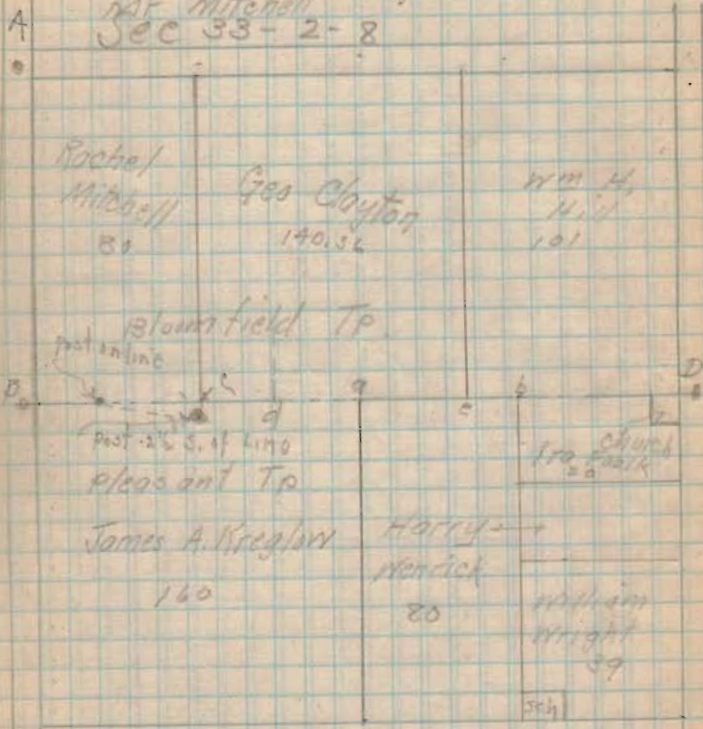 A
Mitchell
Sec 33-2-8
Rachel
Mitchell
80
Geo Clayton
140.56
Wm H.
Hill
101
Bloomfield Tp.
post on line
B
D
d
a
c
b
post 2½ S. of Line
pleasant Tp
James A. Kreglow
160
Harry
Wenrick
80
church
Fra
20
William
Wright
39
sch